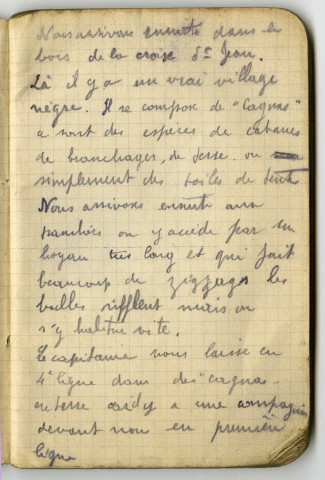 Nous arrivons ensuite dans le
bois de la croix St Jean.
Là il y a un vrai village
nègre. Il se compose de "Cagnas"
ce sont des espèces de cabanes
de branchages, de terre. ou
simplement des toiles de tente
Nous arrivons ensuite aux
tranchées on y accède par un
boyau très long et qui fait
beaucoup de zigzags les
balles sifflent mais on
s'y habitue vite.
Le capitaine nous laisse en
4e ligne dans des "cagnas
en terre a une compagnie
devant nous en première
ligne